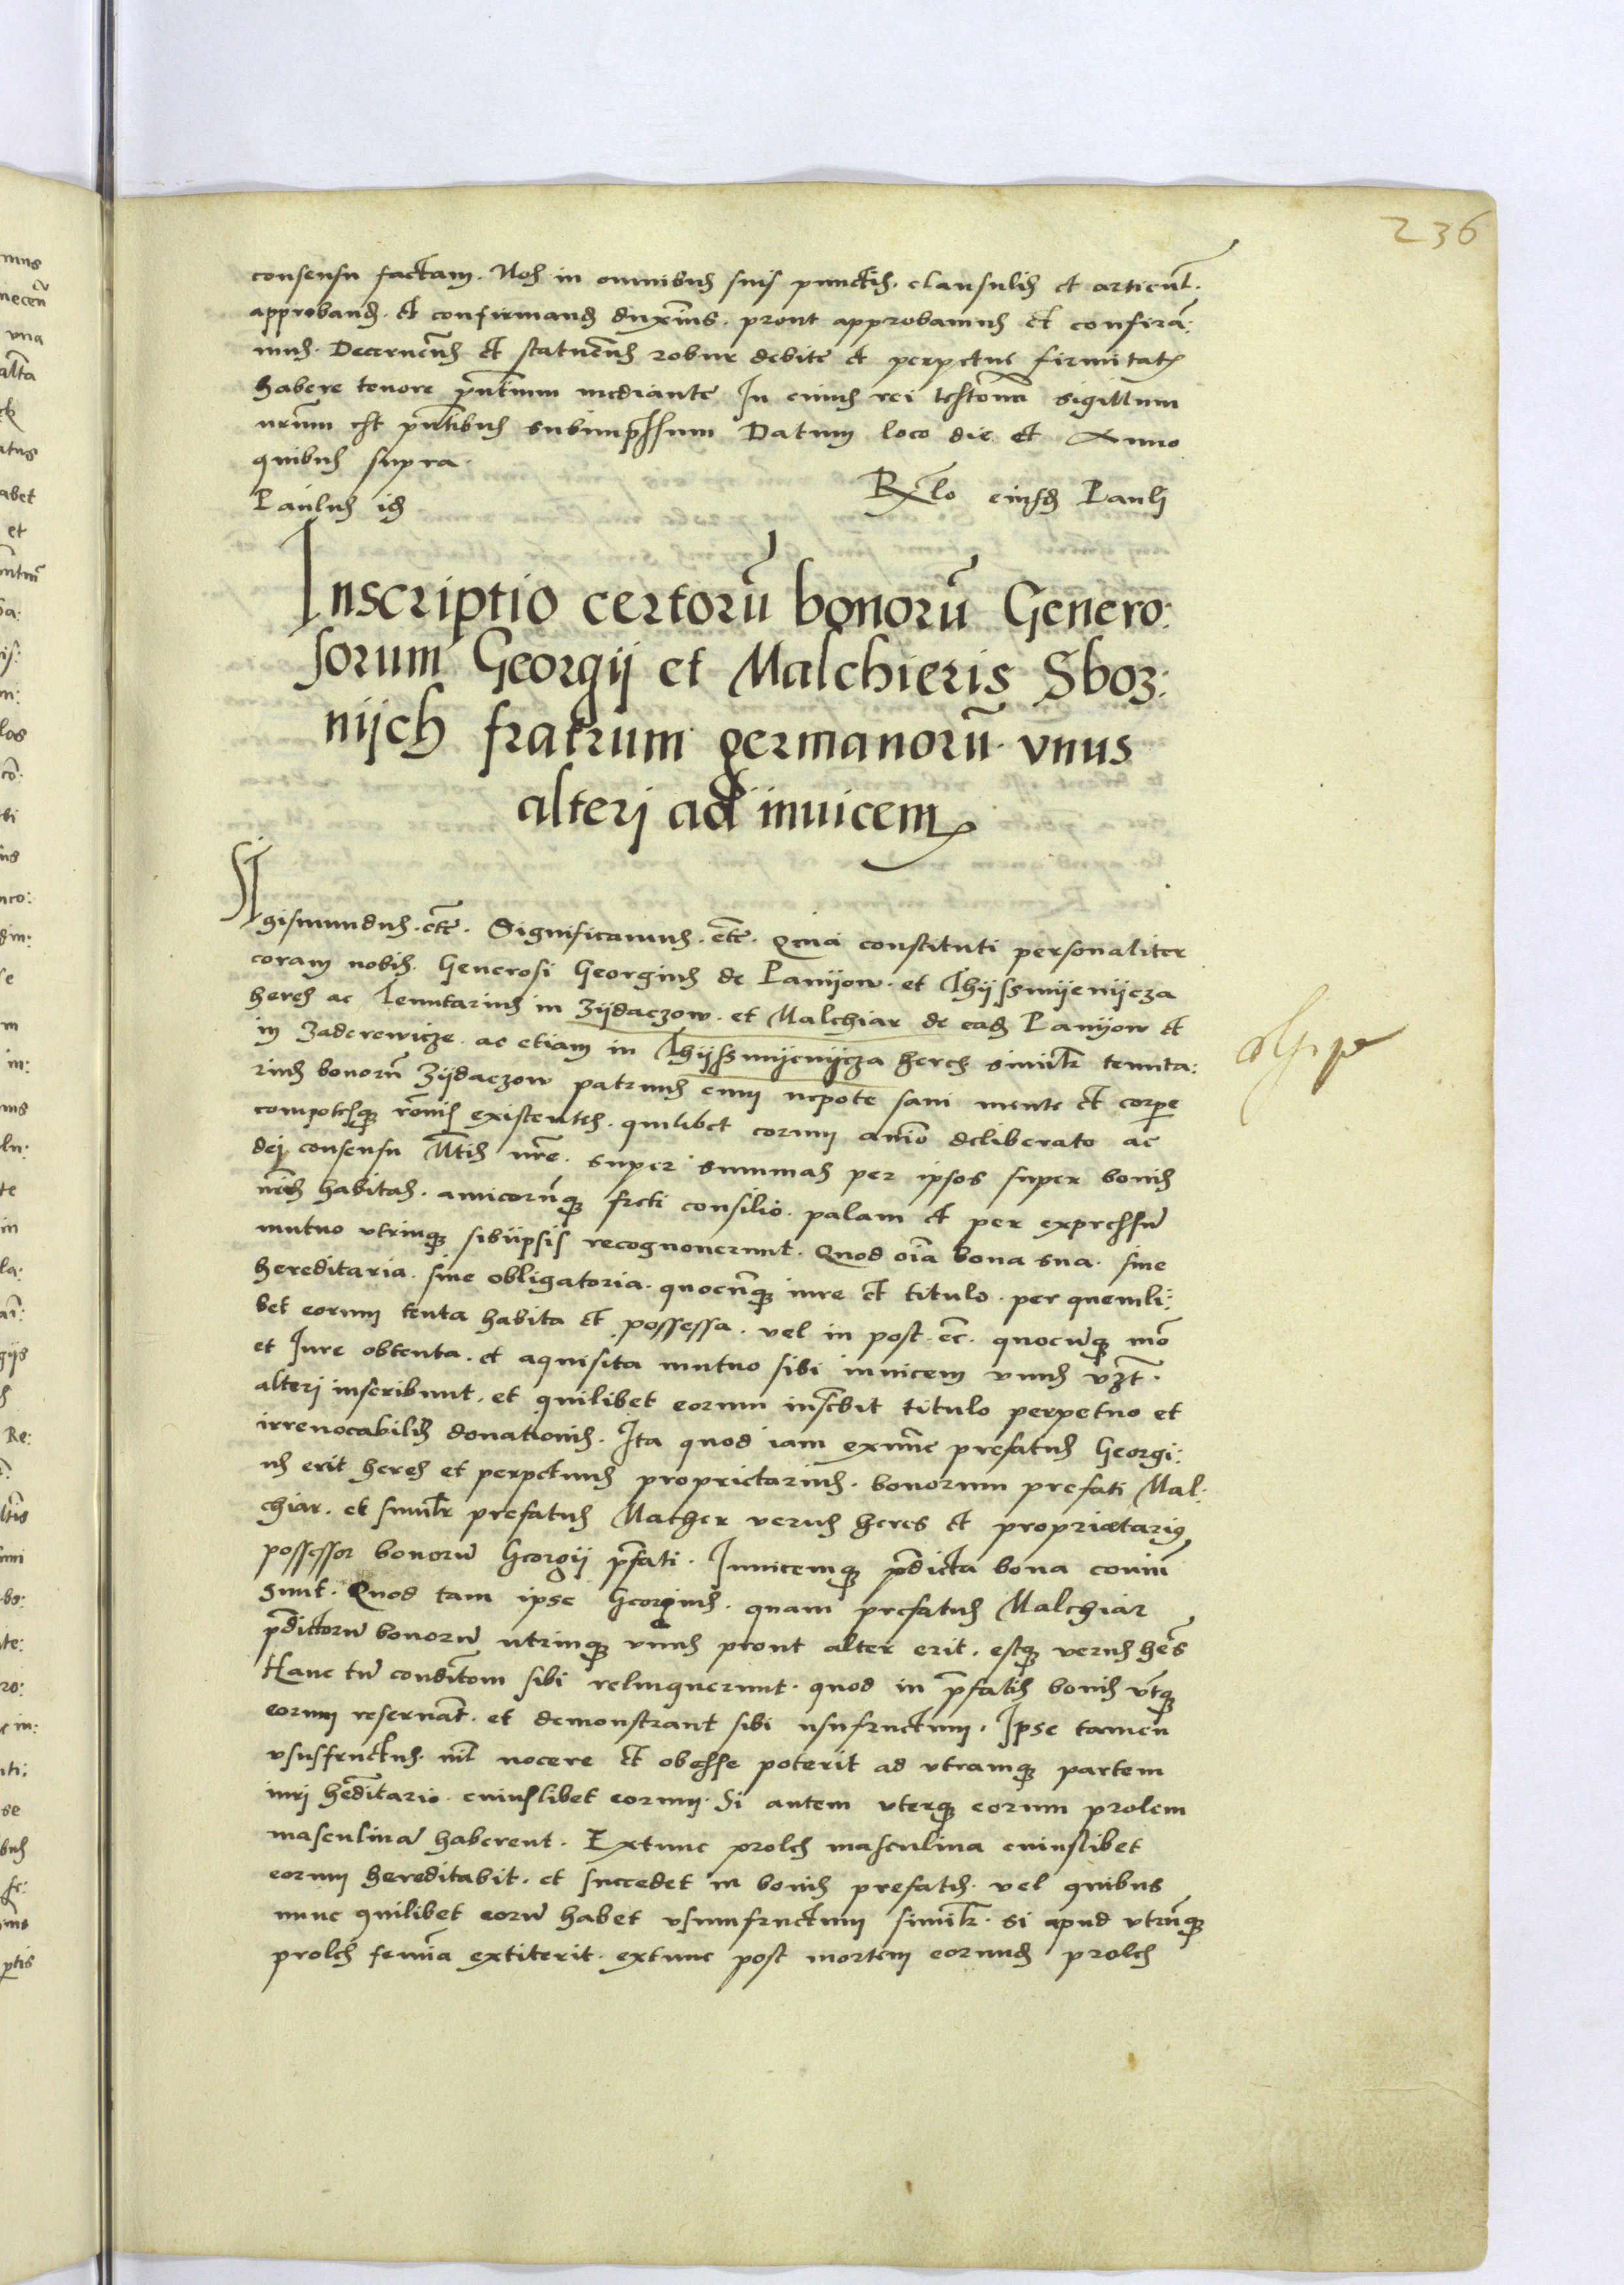 236
consensu factam. Nos in omnibus suis punctis. clausulis et articul̄.
approband. et confirmand duxim̄s. prout approbamus et confirā:
mus. Decernen̄s et statuen̄s robur debite et perpetue firmitatis
habere tenore pn̄tium mediante In cuius rei testom̄ sigillum
nr̄um est pn̄tibus subimpressum Datum loco die et Anno
quibus supra.
Paulus id Rx̄lo eiusd Pauli
Inscriptio certorū bonorū Genero:
sorum Georgij et Malchieris Sboz:
nijch fratrum germanorū. vnus
alteri ad inuicem
Sigismundus. etc̄. Significamus. etc̄. Quia constituti personaliter
coram nobis. Generosi Georgius de Panijow. et Thijssmijenijcza
heres ac Tenutarius in Zijdaczow. et Malchiar de ead Panijow et
in Zaderewicze. ac etiam in Thijssmijenijcza heres similr̄ tenuta:
rius bonorū Zijdaczow patruus cum nepote sani mente et corpe
compotesque rōnis existentes. quilibet eorum anīo deliberato ac
de consensu Mtis nrē. super summas per ipsos super bonis
habitas. amicorūque freti consilio. palam et per expressū
mutuo vtrinque sibiipsis recognouerunt. Quod oīa bona sua. siue
hereditaria. siue obligatoria. quocūque iure et titulo. per quemli:
bet eorum tenta habita et possessa. vel in post. ec̄. quocūque mō
et Iure obtenta. et aquisita mutuo sibi inuicem vnus vzt̄.
alteri inscribunt. et quilibet eorum inscr̄bit titulo perpetuo et
irreuocabilis donationis. Ita quod iam exnūc prefatus Georgi:
us erit heres et perpetuus proprietarius. bonorum prefati Mal:
chiar. et similr̄ prefatus Malcher verus heres et proprietarius
possessor bonorū Georgij pfati. Inuicemque pdicta bona
sunt. Quod tam ipse Georgius. quam prefatus Malchiar
pdictorū bonorū utrinque vnus prout alter erit. estque verus hēs
Hanc tn̄ conditōm sibi relinquerunt. quod in pfatis bonis vtq̄ue
eorum reseruāt. et demonstrant sibi usufructum. Ipse tamen
vsusfructus. nil̄ nocere et obesse poterit ad vtramque partem
iuri hēditario. cuiuslibet eorum. Si autem vterque eorum prolem
masculinā haberent. Extunc proles masculina cuiuslibet
eorum hereditabit. et succedet in bonis prefatis. vel quibus
nunc quilibet eorū habet vsumfructum similr̄. si apud vtrūque
proles femīa extiterit. extunc post mortem eorund proles